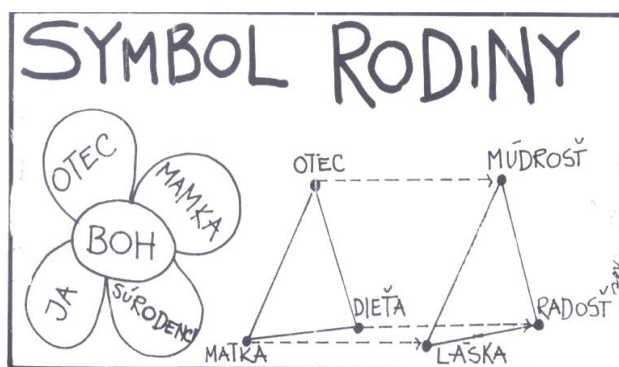 SYMBOL RODINY
OTEC
MAMKA
BOH
JA
SÚRODENCI
OTEC
MÚDROSŤ
DIEŤA
RADOSŤ
MATKA
LÁSKA